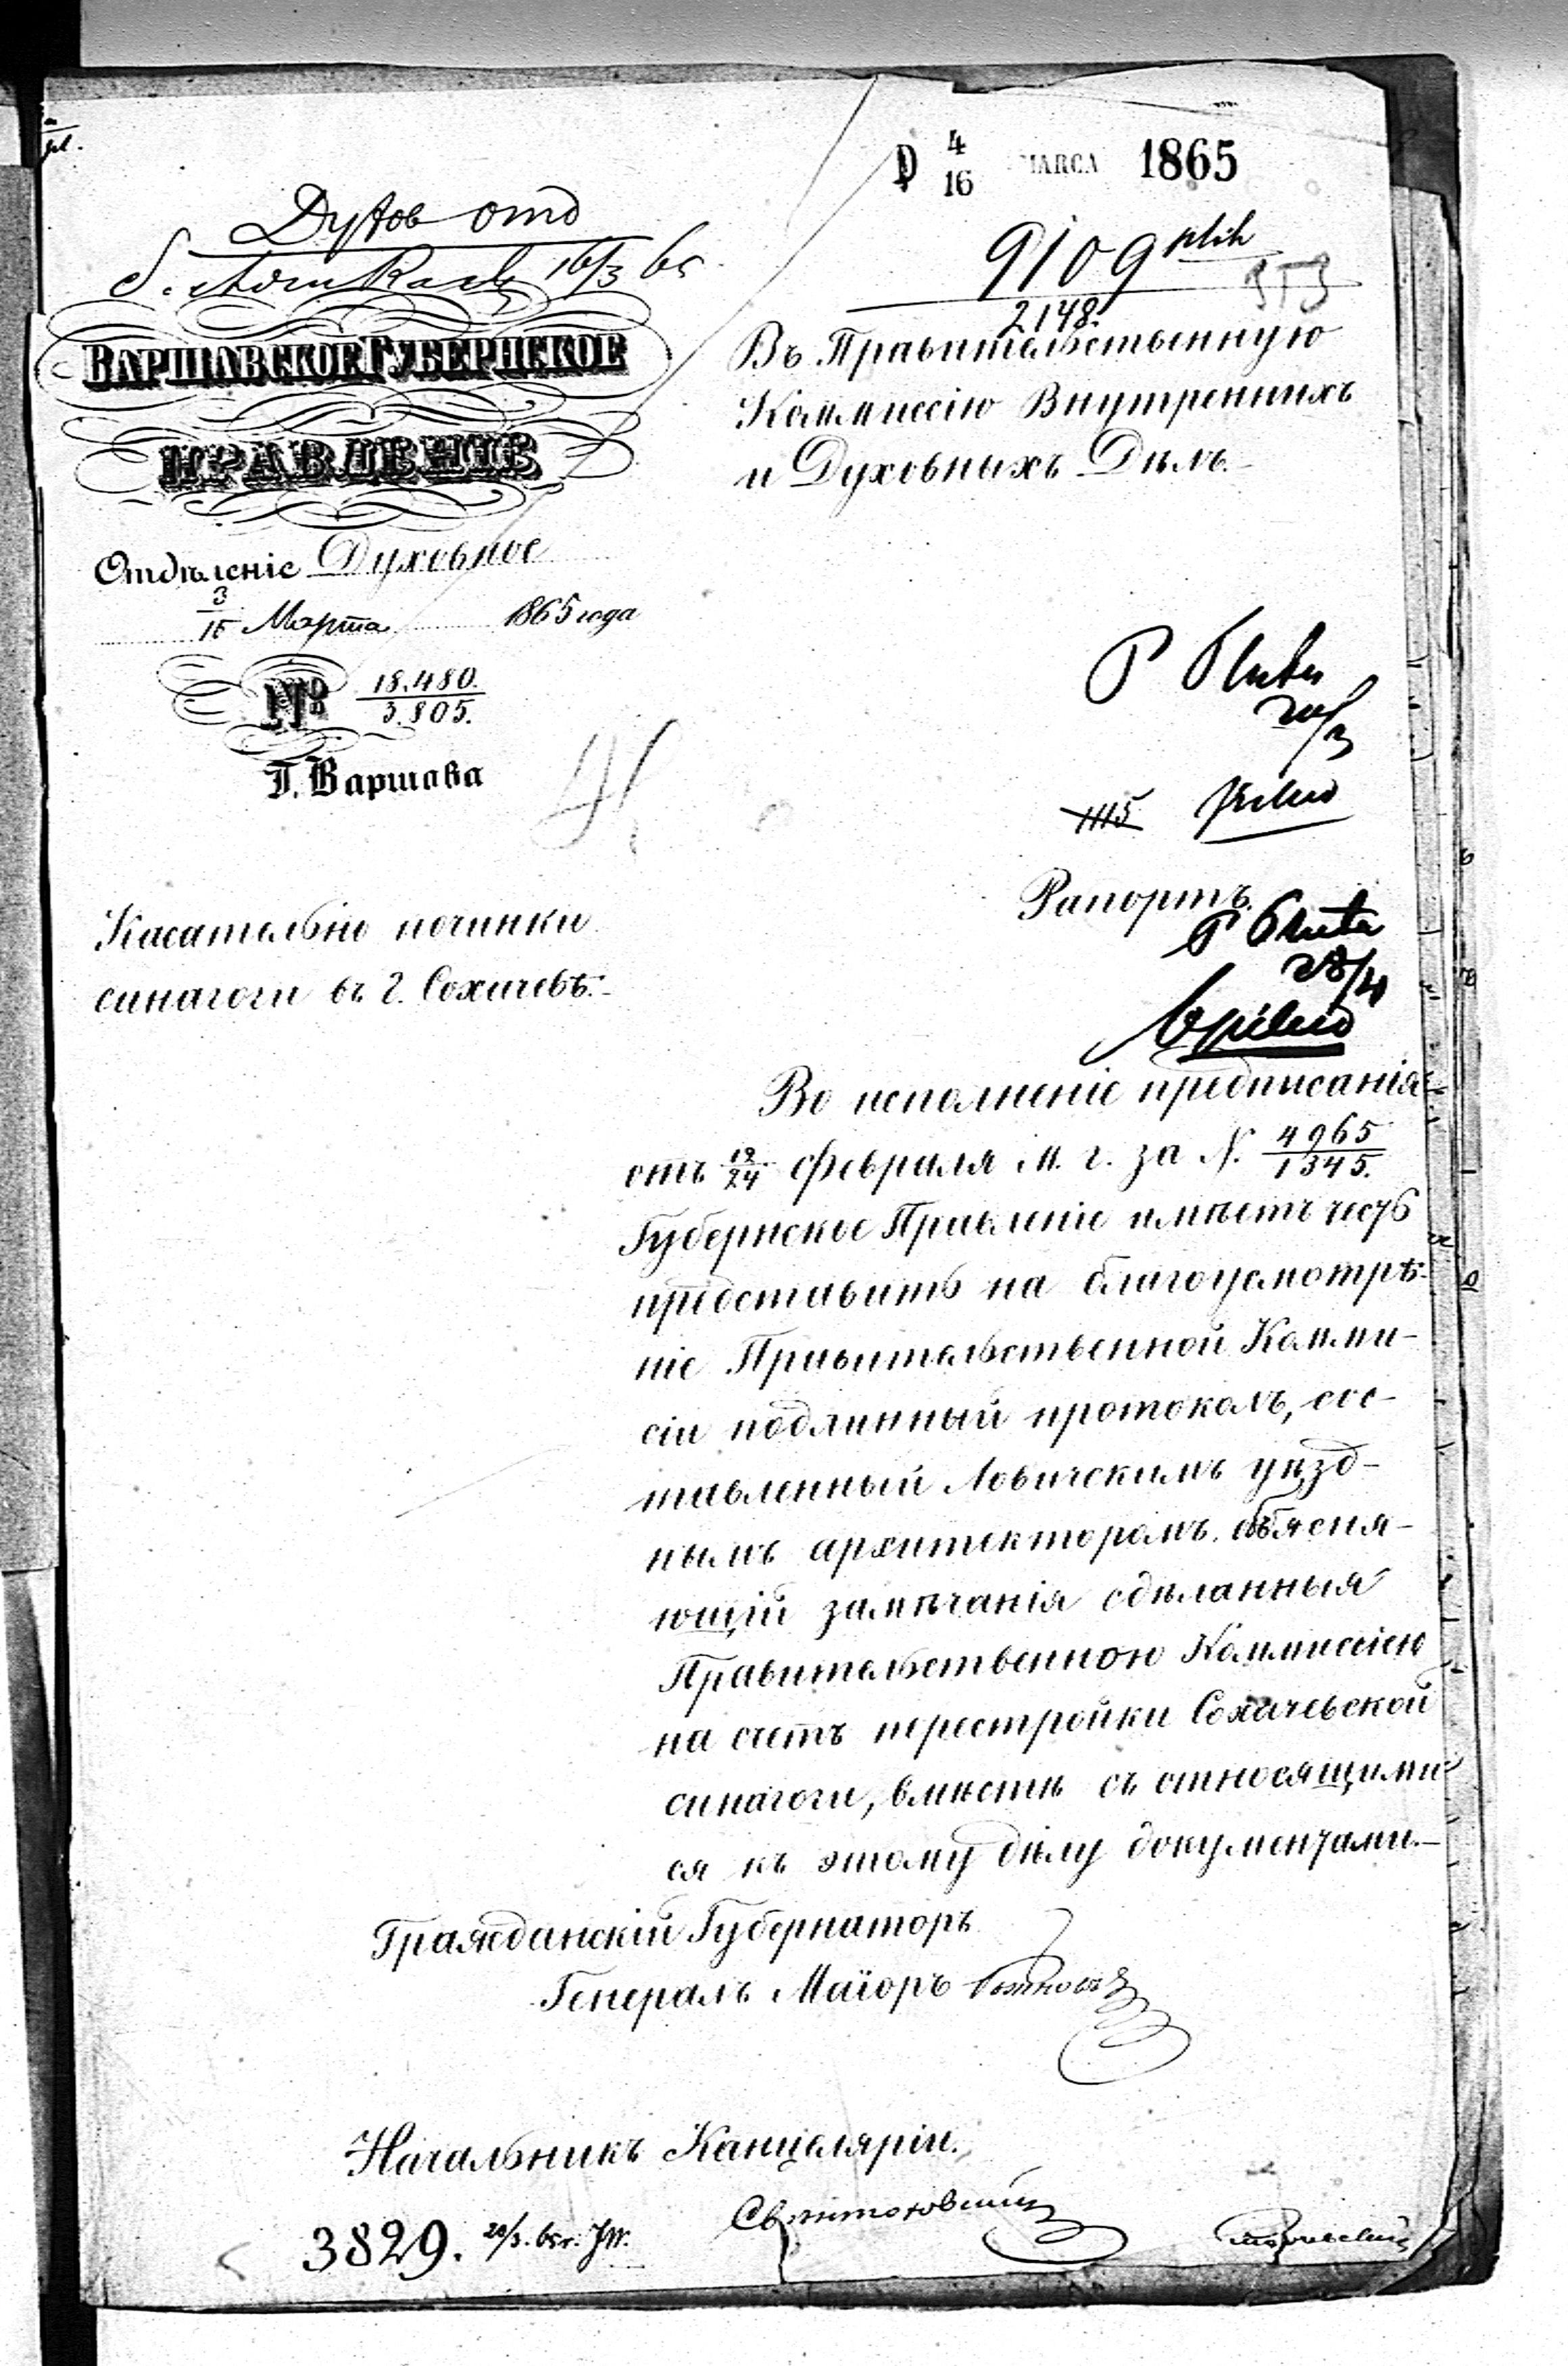 4/16 MARCA 1865
Духов отд
16/3 65
9109
2148.
ВАРШАВСКОЕ ГУБЕРНСКОЕ
ПРАВЛЕНІЕ
Отдѣленіе Духовное
3/15 Марта 1865 года
№ 18.480./3.805.
Г. Варшава
Въ Правительственную
Коммиссію Внутреннихъ
и Духовныхъ Дѣлъ.
20/3
1115
Касательно починки
синагоги въ г. Сохачевѣ.
Рапортъ.
28/4
Во исполненіе предписанія
отъ 12/24 Февраля м. г. за N. 4965/1345.
Губернское Правленіе имѣетъ честь
представить на благоусмотрѣ-
ніе Правительственной Комми-
сіи подлинный протоколъ, сос-
тавленный Ловичскимъ уѣзд-
нымъ архитекторомъ, объясня-
ющій замѣчанія сдѣланныя
Правительственною Коммиссіею
на счетъ перестройки Сохачевской
синагоги, вмѣстѣ съ относящими-
ся къ этому дѣлу документами.
Гражданскій Губернаторъ
Генералъ Маіоръ
Начальникъ Канцеляріи.
3829. 20/3. 65 r.